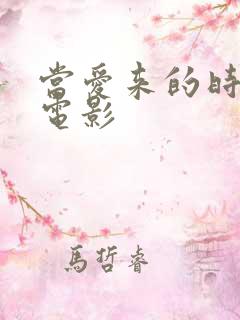 當愛來的時
電影
馬哲睿